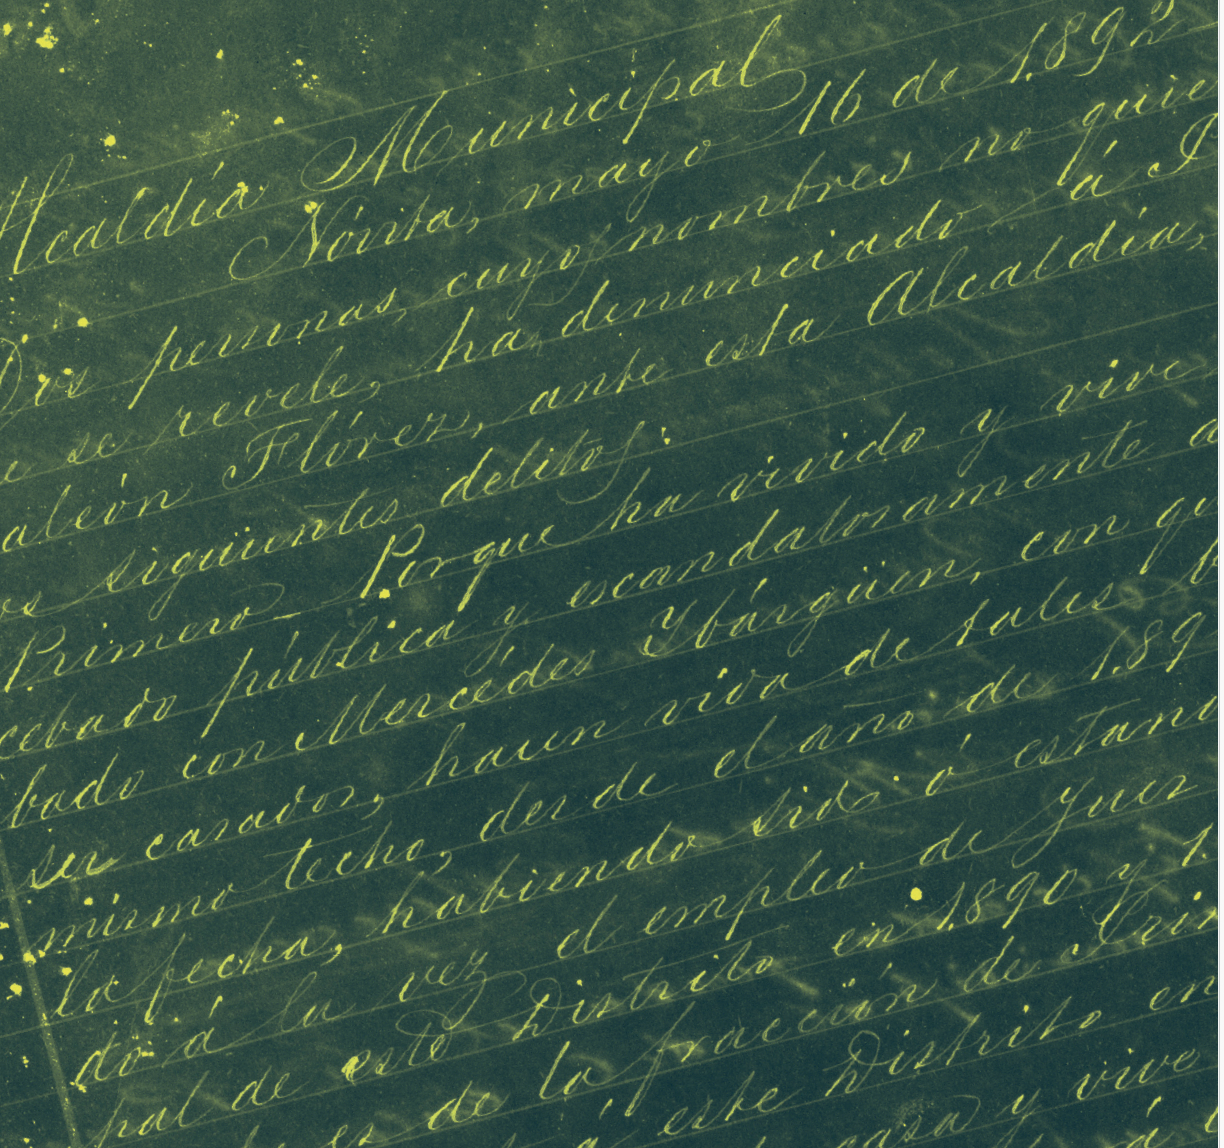 Alcaldía Municipal
Nóvita, mayo 16 de 1.892
Dos personas, cuyos nombres no quie
e se revele, ha denunciado á P
aleón Flórez, ante esta Alcaldía,
os siguientes delitos:
Primero _ Porque ha vivido y vive
cebado público y escandalosamente a
bado con Mercédes Ybárgüen, con qu
ser casados, hacen vida de tales
mismo techo, desde el año de 1.89
la fecha, habiendo sido ó estan
do á la vez el empleo de Juez
pal de este Distrito en 1.890 y 1.
es de la fracción de
á este Distrito en
casa y vive